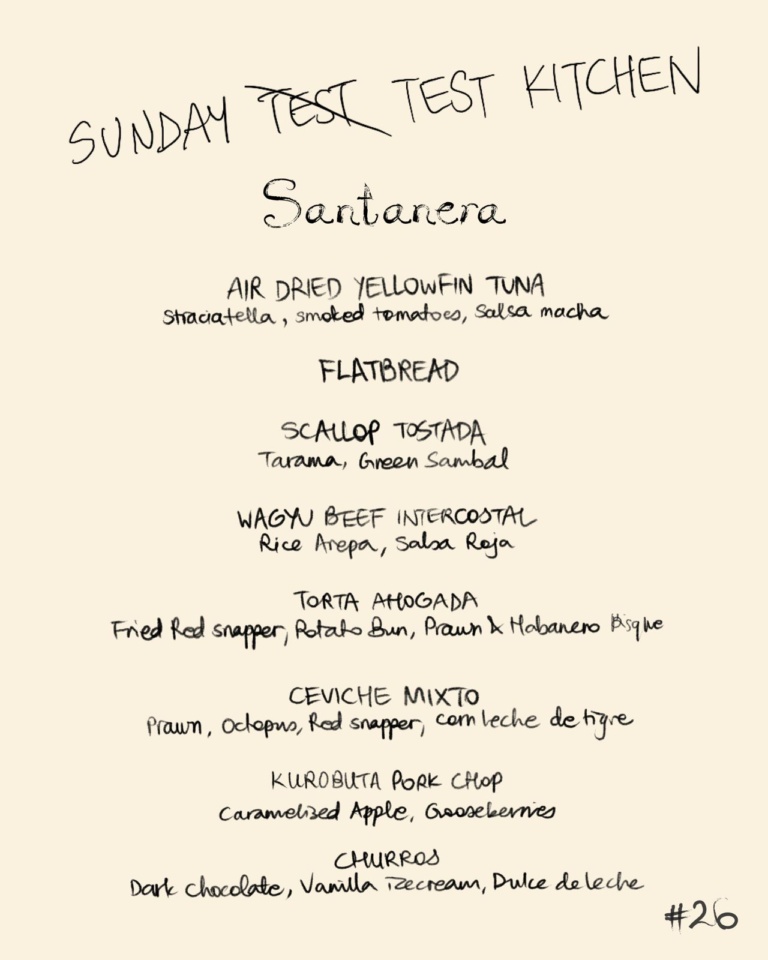 SUNDAY TEST TEST KITCHEN
Santanera
AIR DRIED YELLOWFIN TUNA
Straciatella, smoked tomatoes, Salsa macha
FLATBREAD
SCALLOP TOSTADA
Tarama, Green Sambal
WAGYU BEEF INTERCOSTAL
Rice Arepa, Salsa Roja
TORTA AHOGADA
Fried Red snapper, Potato Bun, Prawn & Habanero Bisque
CEVICHE MIXTO
Prawn, Octopus, Red snapper, corn leche de tigre
KUROBUTA PORK CHOP
Caramelised Apple, Gooseberries
CHURROS
Dark Chocolate, Vanilla Icecream, Dulce de leche
#26